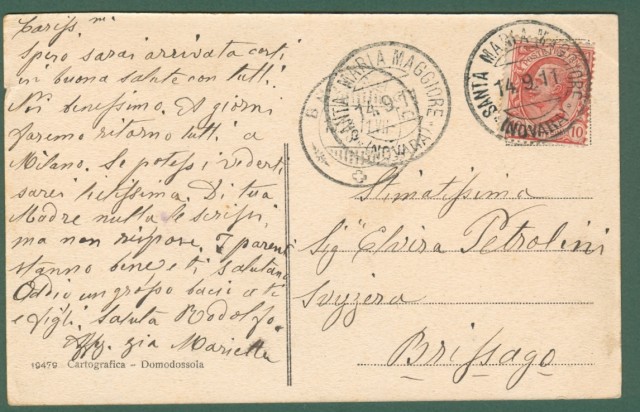 Cariss.ma
Spero sarai arrivata costi
in buona salute con tutti.
Noi benissimo. Es giorni
faremo ritorno tutti a
Milano. Se potessi vederti
sarei lietissima. Di tua
Madre nulla le scrissi
ma non rispose. I parenti
stanno bene e ti salutano
Addio un grosso bacio a te
e figli. saluta Rodolfo.
zia Marietta
19479 Cartografica - Domodossola
SANTA MARIA MAGGIORE
14.9.11
(NOVARA)
SANTA MARIA MAGGIORE
14.9.11
(NOVARA)
10
Stimatissima
Sig.ra Elvira Petrolini
Svyzzera
Brissago